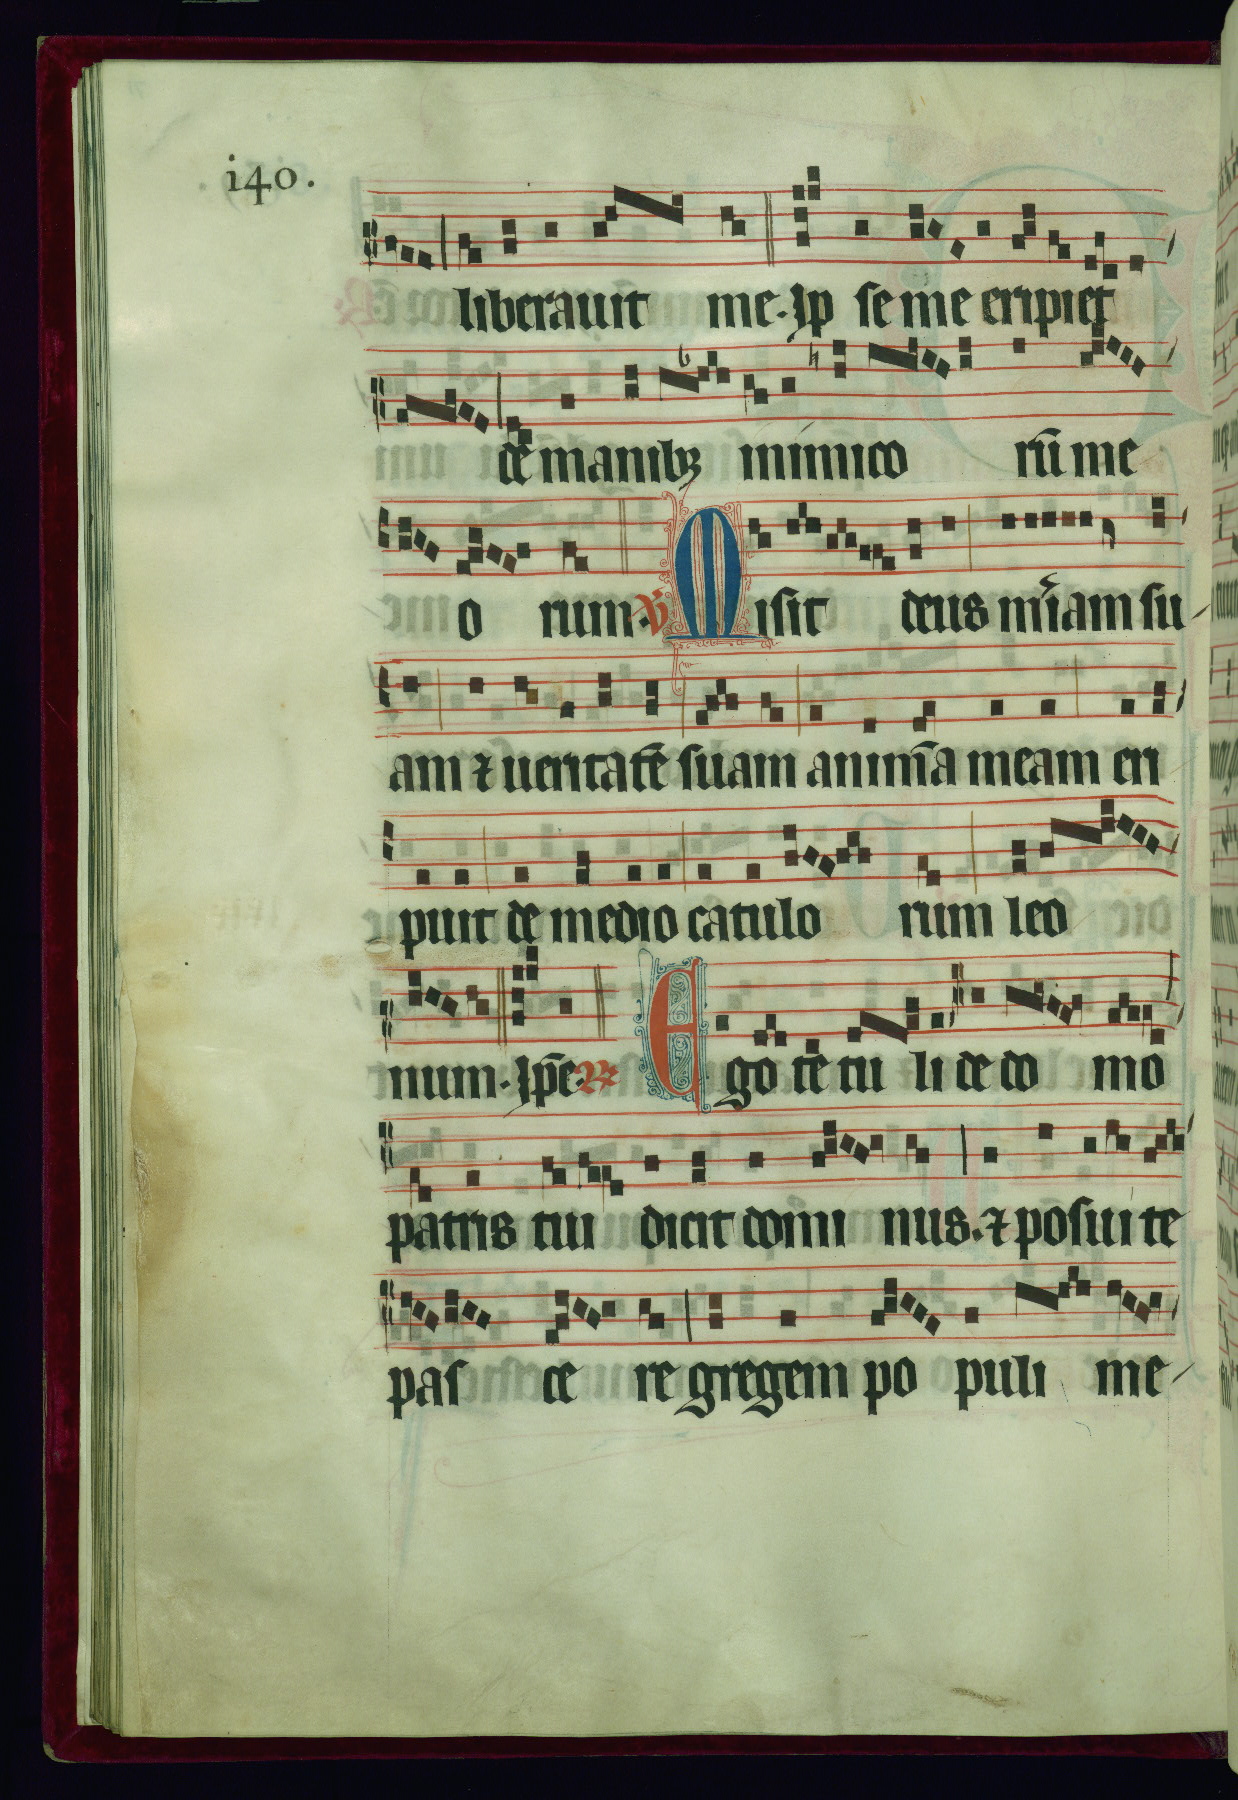 i40.
liberauit me. Ip se me eripiet
de manibꝫ inimico rū me
o rum. ℣ Misit deus mr̄iam su
am ⁊ ueritatē suam animā meam eri
puit de medio catulo rum leo
num. Ip̄e. ℟ Ego te tu li de do mo
patris tui dicit domi nus. ⁊ posui te
pas ce re gregem po puli me